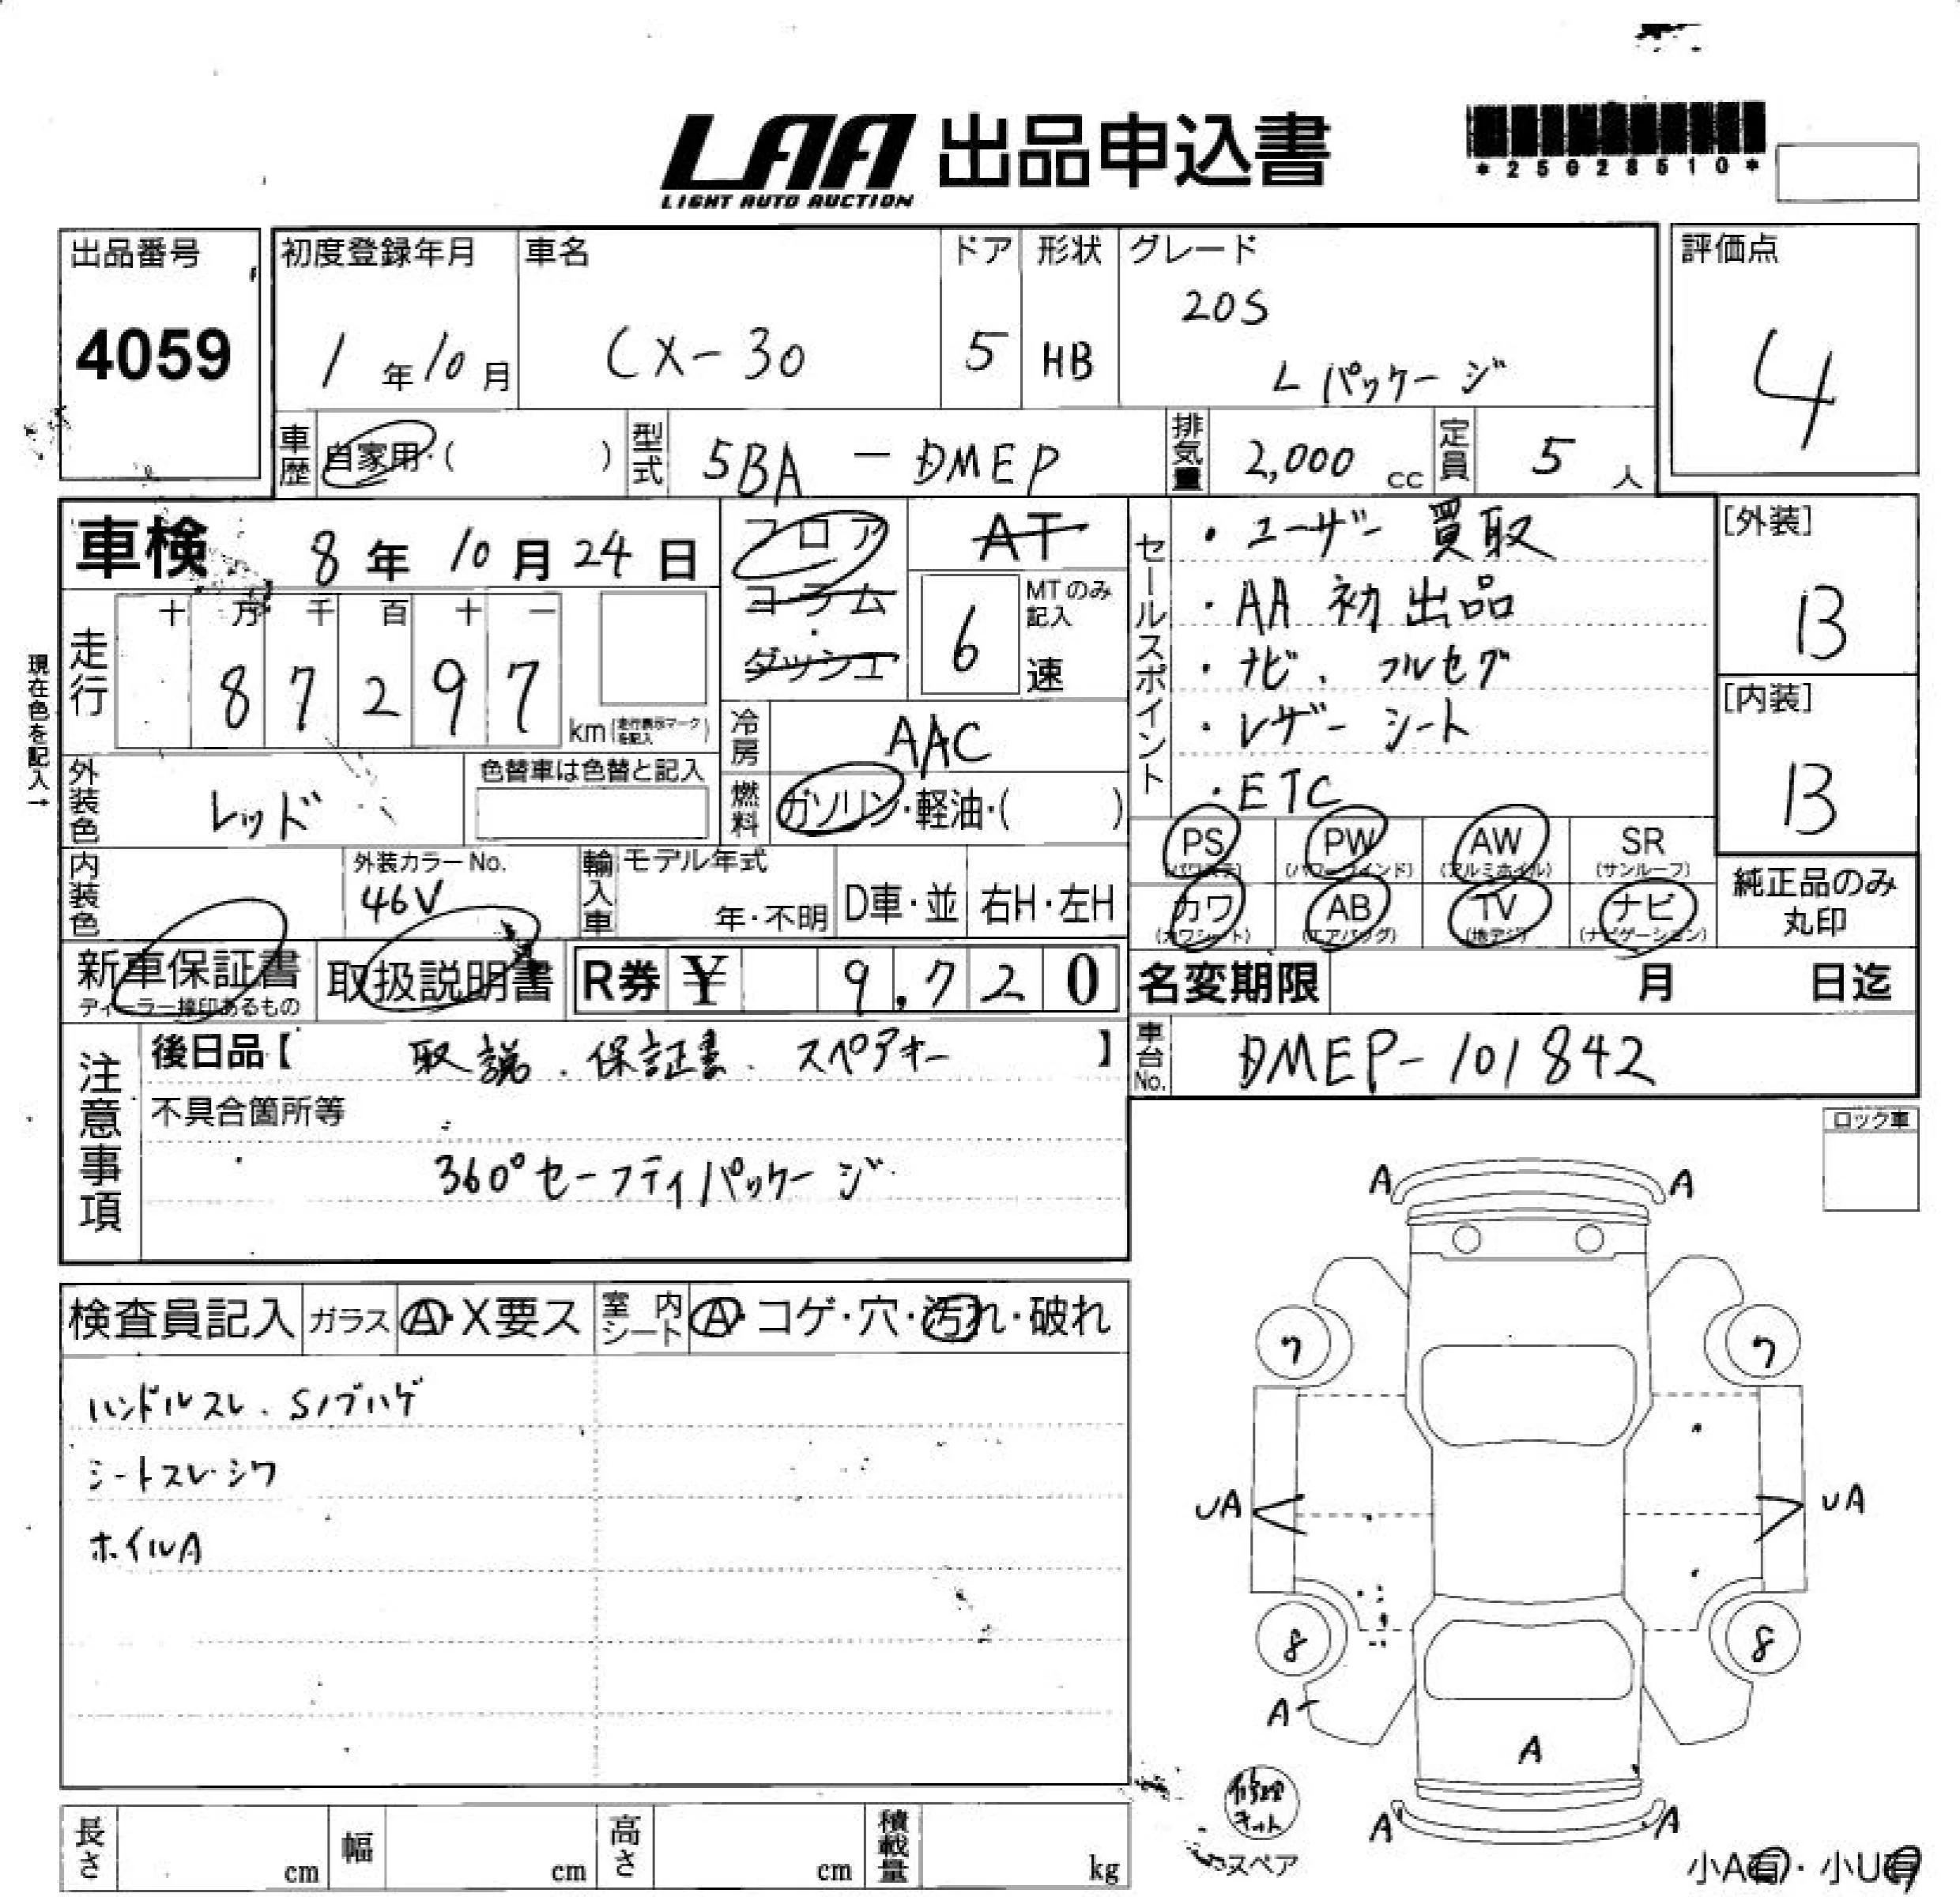 LAA 出品申込書
LIGHT AUTO AUCTION
*25028510*
出品番号
4059
初度登録年月
1年10月
車名
CX-30
ドア
5
形状
HB
グレード
20S
Lパッケージ
評価点
4
車歴
自家用・( )
型式
5BA-DMEP
排気量
2,000 cc
定員
5 人
車検 8年10月24日
フロア
コラム
・
ダッシュ
AT
MTのみ記入
6 速
セールスポイント
・ユーザー買取
・AA初出品
・ナビ、フルセグ
・レザーシート
・ETC
[外装]
B
[内装]
B
現在色を記入→
走行
十 万 千 百 十 一
8 7 2 9 7
km(走行表示マークを記入)
冷房
AAC
外装色
レッド
色替車は色替と記入
燃料
ガソリン・軽油・( )
PS
(パワステ)
PW
(パワーウインド)
AW
(アルミホイル)
SR
(サンルーフ)
カワ
(カワシート)
AB
(エアバッグ)
TV
(地デジ)
ナビ
(ナビゲーション)
純正品のみ
丸印
内装色
外装カラーNo.
46V
輸入車
モデル年式
年・不明
D車・並
右H・左H
新車保証書
ディーラー捺印あるもの
取扱説明書
R券 ¥ 9,720
名変期限 月 日迄
車台No.
DMEP-101842
注意事項
後日品【 取説、保証書、スペアキー 】
不具合箇所等
360°セーフティパッケージ
ロック車
検査員記入
ガラス
A・X要ス
室内シート
A・コゲ・穴・汚れ・破れ
ハンドルスレ、Sノブハゲ
シートスレ・シワ
ホイルA
A A
7 7
UA UA
8 8
A
A
A A
修理キット
スペア
小A有・小U有
長さ cm
幅 cm
高さ cm
積載量 kg